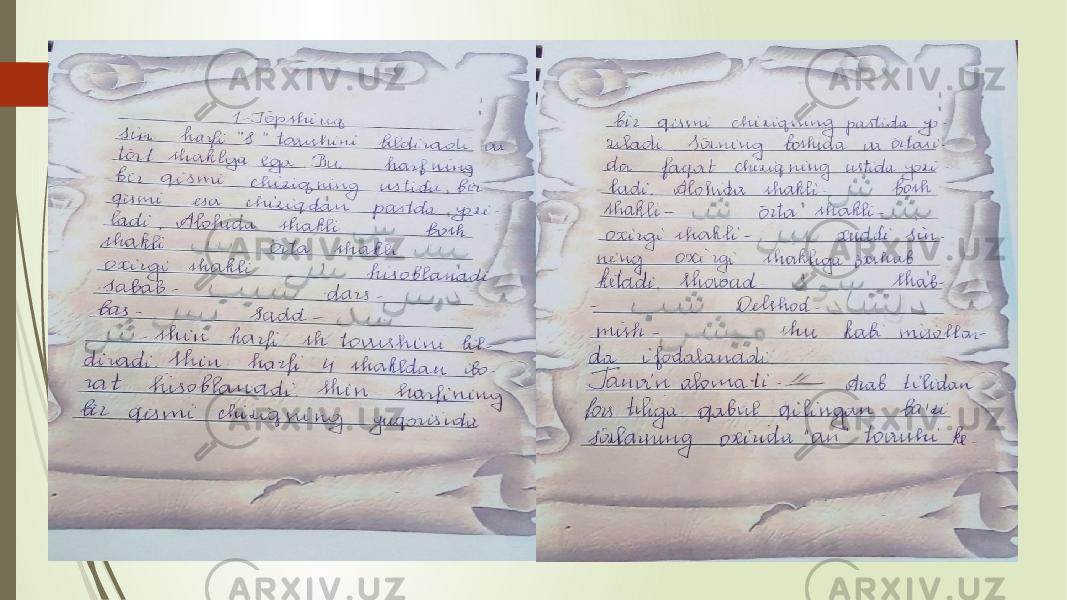 1-Topshiriq
sin harfi "S" tovushini bildiradi va
tört shaklga ega. Bu harfning
bir qismi chiziqning ustida, bir
qismi esa chiziqdan pastda yozi-
ladi. Alohida shakli س bosh
shakli ـسـ örta shakli
oxirgi shakli hisoblanadi
sabab - dars - درس
bas - sadd - سد
ش - shin harfi sh tovushini bil-
diradi. Shin harfi 4 shakldan ibo-
rat hisoblanadi. Shin harfining
bir qismi chiziqning yuqorisida
bir qismi chiziqning pastida yo-
ziladi. Sözning boshida va örtasi-
da faqat chiziqning ustida yozi-
ladi. Alohida shakli - ش bosh
shakli - örta shakli -
oxirgi shakli - xuddi sin-
ning oxirgi shakliga öxshab
ketadi. shab-
- Delshod - دلشاد
mish - shu kabi misollar-
da ifodalanadi.
Tanvin alomati - Arab tilidan
fors tiliga qabul qilingan ba'zi
sözlarning oxirida "an" tovushi ke-
ARXIV.UZ
ARXIV.UZ
ARXIV.UZ
ARXIV.UZ
ARXIV.UZ
ARXIV.UZ